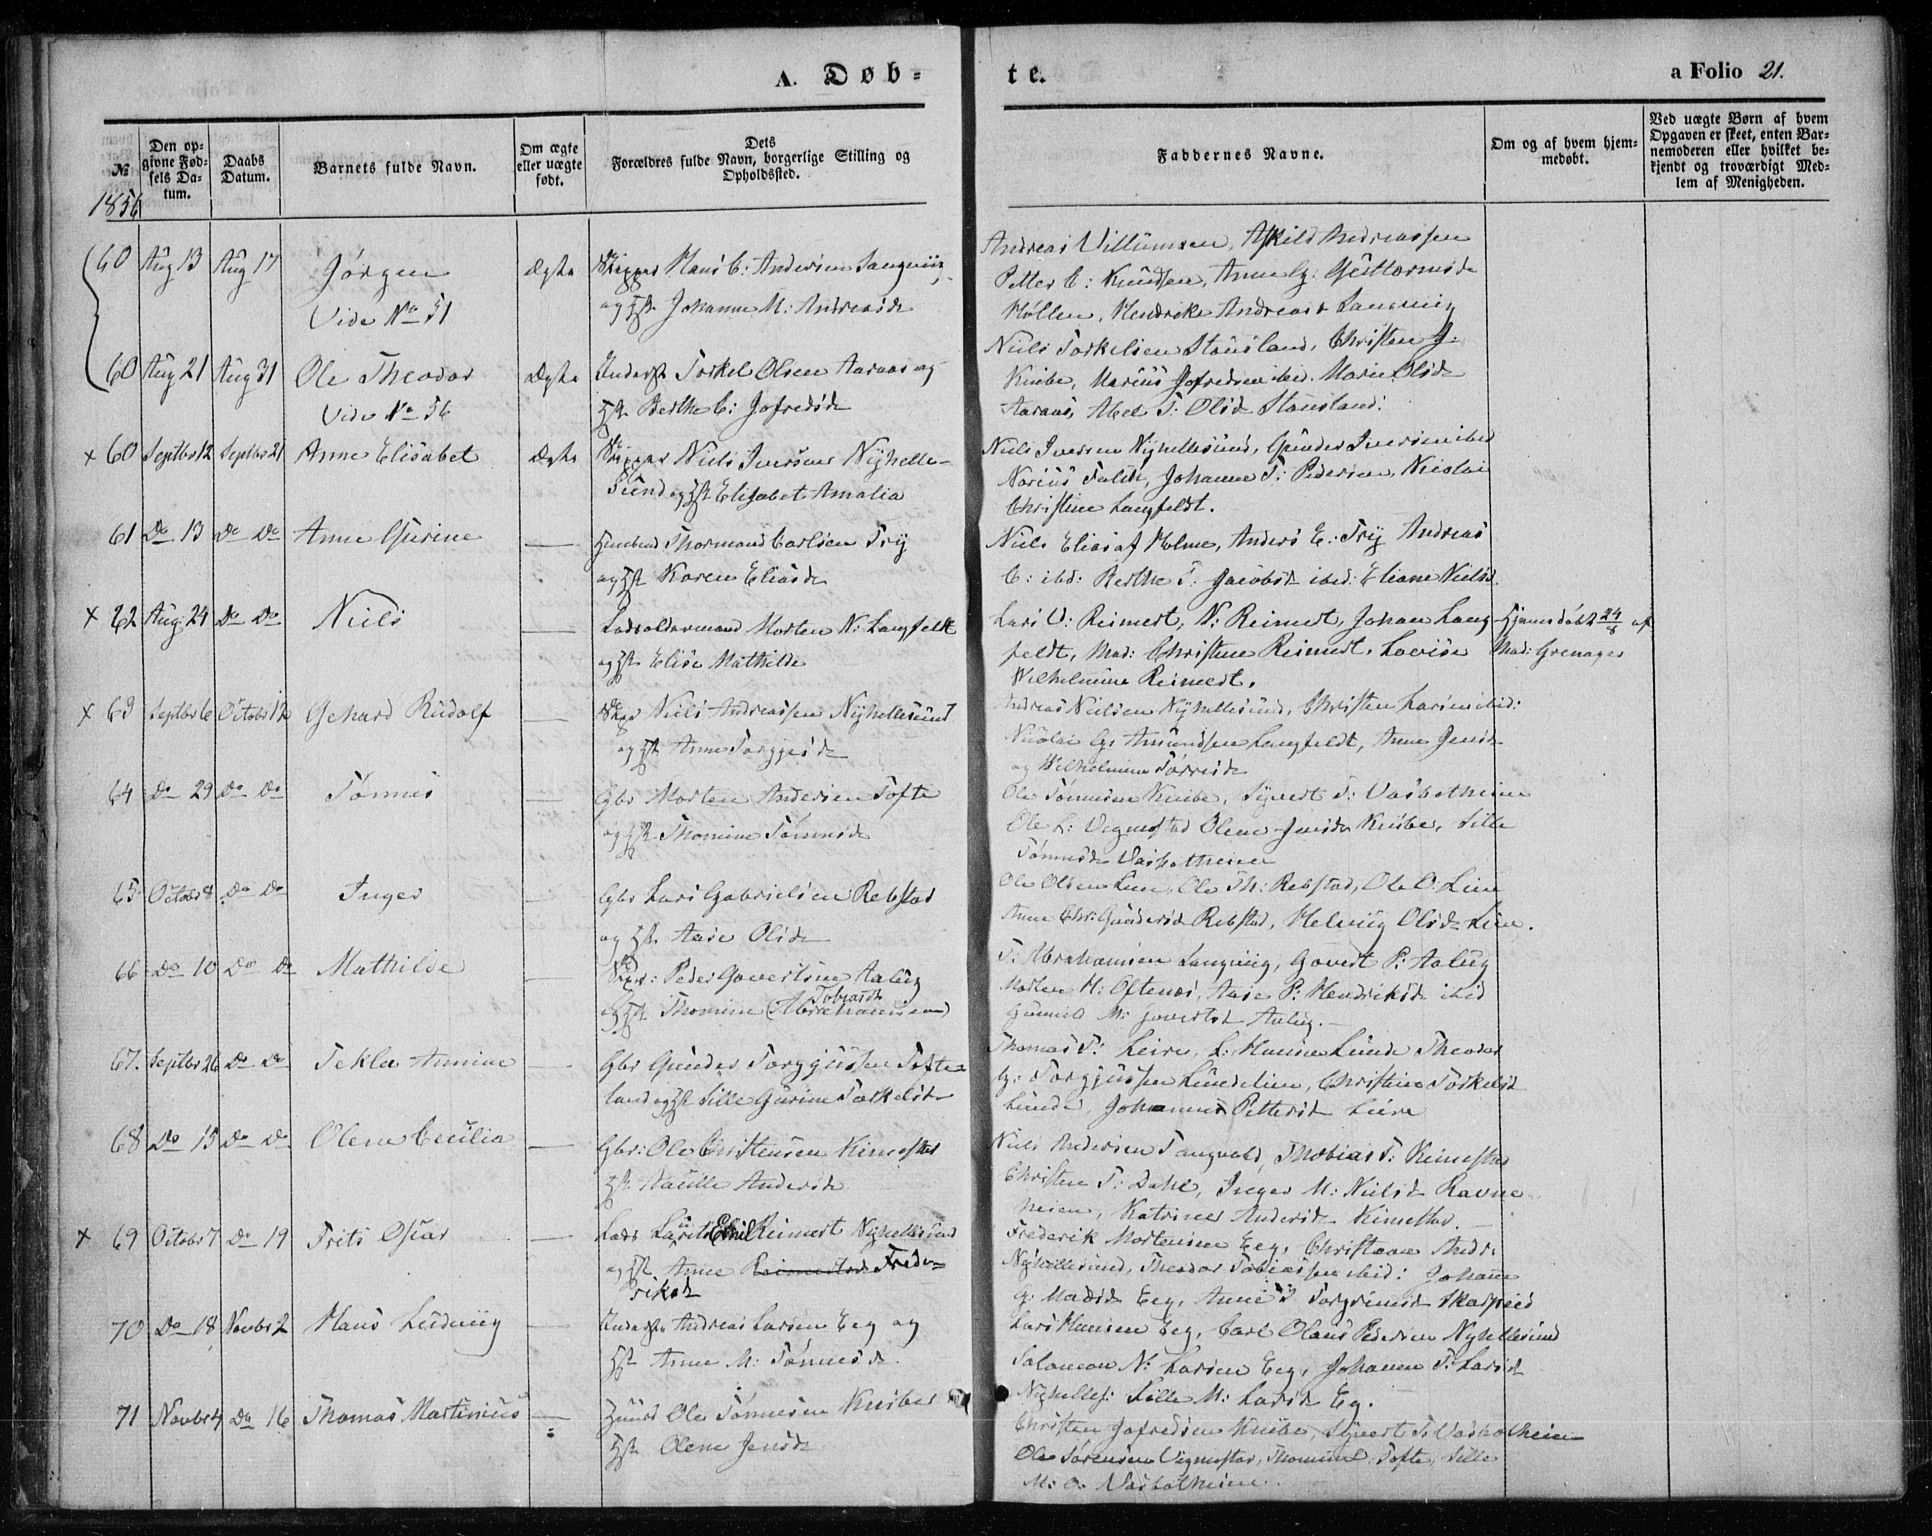 A. Døb=
te.
a Folio 21.
№
Den op-
givne Fød-
sels Da-
tum.
Daabs
Datum.
Barnets fulde Navn.
Om ægte
eller uægte
født.
Dets
Forældres fulde Navn, borgerlige Stilling og
Opholdssted.
Faddernes Navne.
Om og af hvem hjem-
medøbt.
Ved uægte Børn af hvem
Opgaven er skeet, enten Bar-
nemoderen eller hvilket be-
kjendt og troværdigt Med-
lem af Menigheden.
1856
60 Aug 13 Aug 17 Jørgen Ægte Skipper Hans C: Andersen Langeviig
Vide No 51 og Hst Johanne M: Andreasd
Andreas Villumsen, Askild Andreassen
Petter C: Knudsen, Anne G: Guttormsd
Høllen, Hendrike Andreasd Langeviig
60 Aug 21 Aug 31 Ole Theodor Ægte Inderst Torkel Olsen Aaraas og
Vide No 56 Hst Berthe C: Jofredsd
Niels Torkelsen Stousland, Christen J.
Knibe, Marius Jofredsen ibid. Marie Olsd
Aaraas, Abel T: Olsd Stousland.
x 60 Septbr 12 Septbr 21 Anne Elisabet Ægte Skipper Niels Iversen Nyhelle-
Sund og Hst Elisabet Amalia
Niels Iversen Nyhellesund, Gunder Iversen ibid
Johanne T: Pedersen, Nicolai
Christine Langfeldt.
61 Do 13 Do Do Anne Gurine — Huusmd Thormod Carlsen Try
og Hst Karen Eliasd
Niels Elias af Holme, Anders E: Try Andreas
C: ibd: Berthe T: Jacobsd ibid: Eliane Nielsd.
x 62 Aug 24 Do Do Niels — Lodsoldermand Morten N: Langfeldt
og Hst Elise Mathilde
Lars U: Reimert, N: Reimert, Johan Lang-
feldt, Mad: Christine Reimert, Lovise
Wilhelmine Reimert.
Hjemdøbt 24/8 af
Mad: Grenager
x 63 Septbr 6 Octobr 12 Gehard Rudolf Skpr Niels Andreassen Nyhellesund
og Hst Anne Torgjesd
Andreas Nielsen Nyhellesund, Christen Larsen ibid:
Nicolai G: Amundsen Langfeldt, Anne Jensd
og Wilhelmine Torresd
64 Do 29 Do Do Tønnes — Gbr Morten Andersen Tofte
og Hst Thomine Tønnesd
Ole Tønnesen Knibe, Syvert T: Vasbotheien
Ole L: Vegmostad Olene Jensd Knibe, Sille
Tønnesd Vasbotheien
65 Octobr 8 Do Do Inger — Gbr Lars Gabrielsen Rebstad
og Hst Aase Olsd
Ole Olsen Lien, Ole Th: Rebstad, Ole O. Lien
Anne Chr: Gundersd Rebstad, Helvig Olsd Lien.
66 Do 10 Do Do Mathilde — Skpr: Peder Govertsen Aalug
Tobiasd
og Hst Thomine (Abrahamsen)
T: Abrahamsen Langeviig, Govert P: Aalug
Morten H: Oftenæs, Aase P: Hendriksd ibid
Gunnild M: Govertsd Aalug.
67. Septbr 26 Do Do Tekla Amine — Gbr Gunder Torgjussen Tofte-
land og Hst Sille Gurine Torkelsd
Thomas T: Leire, L: Hansen Lunde Theodor
G: Torgjussen Lundelien, Christine Torkelsd
Lunde, Johanne Pettersd Leire
68 Do 15 Do Do Olene Cecilia — Gbr: Ole Christensen Kimestad
Hst: Andersd
Niels Andersen Tangvald, Thobias T: Kimestad
Christen T: Dahl, Inger M: Nielsd Ravne-
heien, Katrine Andersd Kimestad.
x 69 Octobr 7 Do 19 Frits Oscar — Lods Lauritz Emil Reimert Nyhellesund
og Hst Anne Frede-
riksd
Frederik Mortensen Eeg, Christian Andr:
Nyhellesund, Theodor Tobiassen ibid: Johanne
G: Madsd Eeg, Anne T Torgrimsd Skarpeid
70 Do 18 Novbr 2 Hans Ludvig — Inderst Andreas Larsen Eeg og
Hst Anne M: Tønnesd.
Lars Hansen Eeg, Carl Olaus Pedersen Nyhellesund
Salomon N: Larsen Eeg, Johanne T: Larsd
Nyhelles: Sille M: Larsd Eg.
71 Novbr 4 Do 16 Thomas Martinius — Huusmd Ole Tønnesen Knibe
Hst Olene Jensd
Christen Jofredsen Knibe, Syvert T: Vasbotheien
Ole Sørensen Vegmostad, Thomine Tofte, Sille
M: O: Vasbotheien.